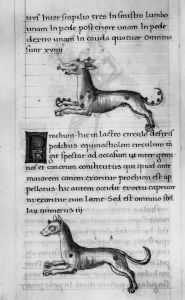 tres Inter scapilio tres In sinistro lumbo
unam in pede posteriore unam In pede
dextro unam in cauda quatuor omnino
sunt xviiii
Prochion hic in lacteo circulo defixis
pedibus equinochialem circulum
spectat ad occasum ut inter gemi
nos et cancrum constitutus qui quod ante
maiorem canem exoritur prochion est ap
pellatus hic autem occidit exorto capricor
no exoritur cum leone Sed est omnino stel
larum numerus iii